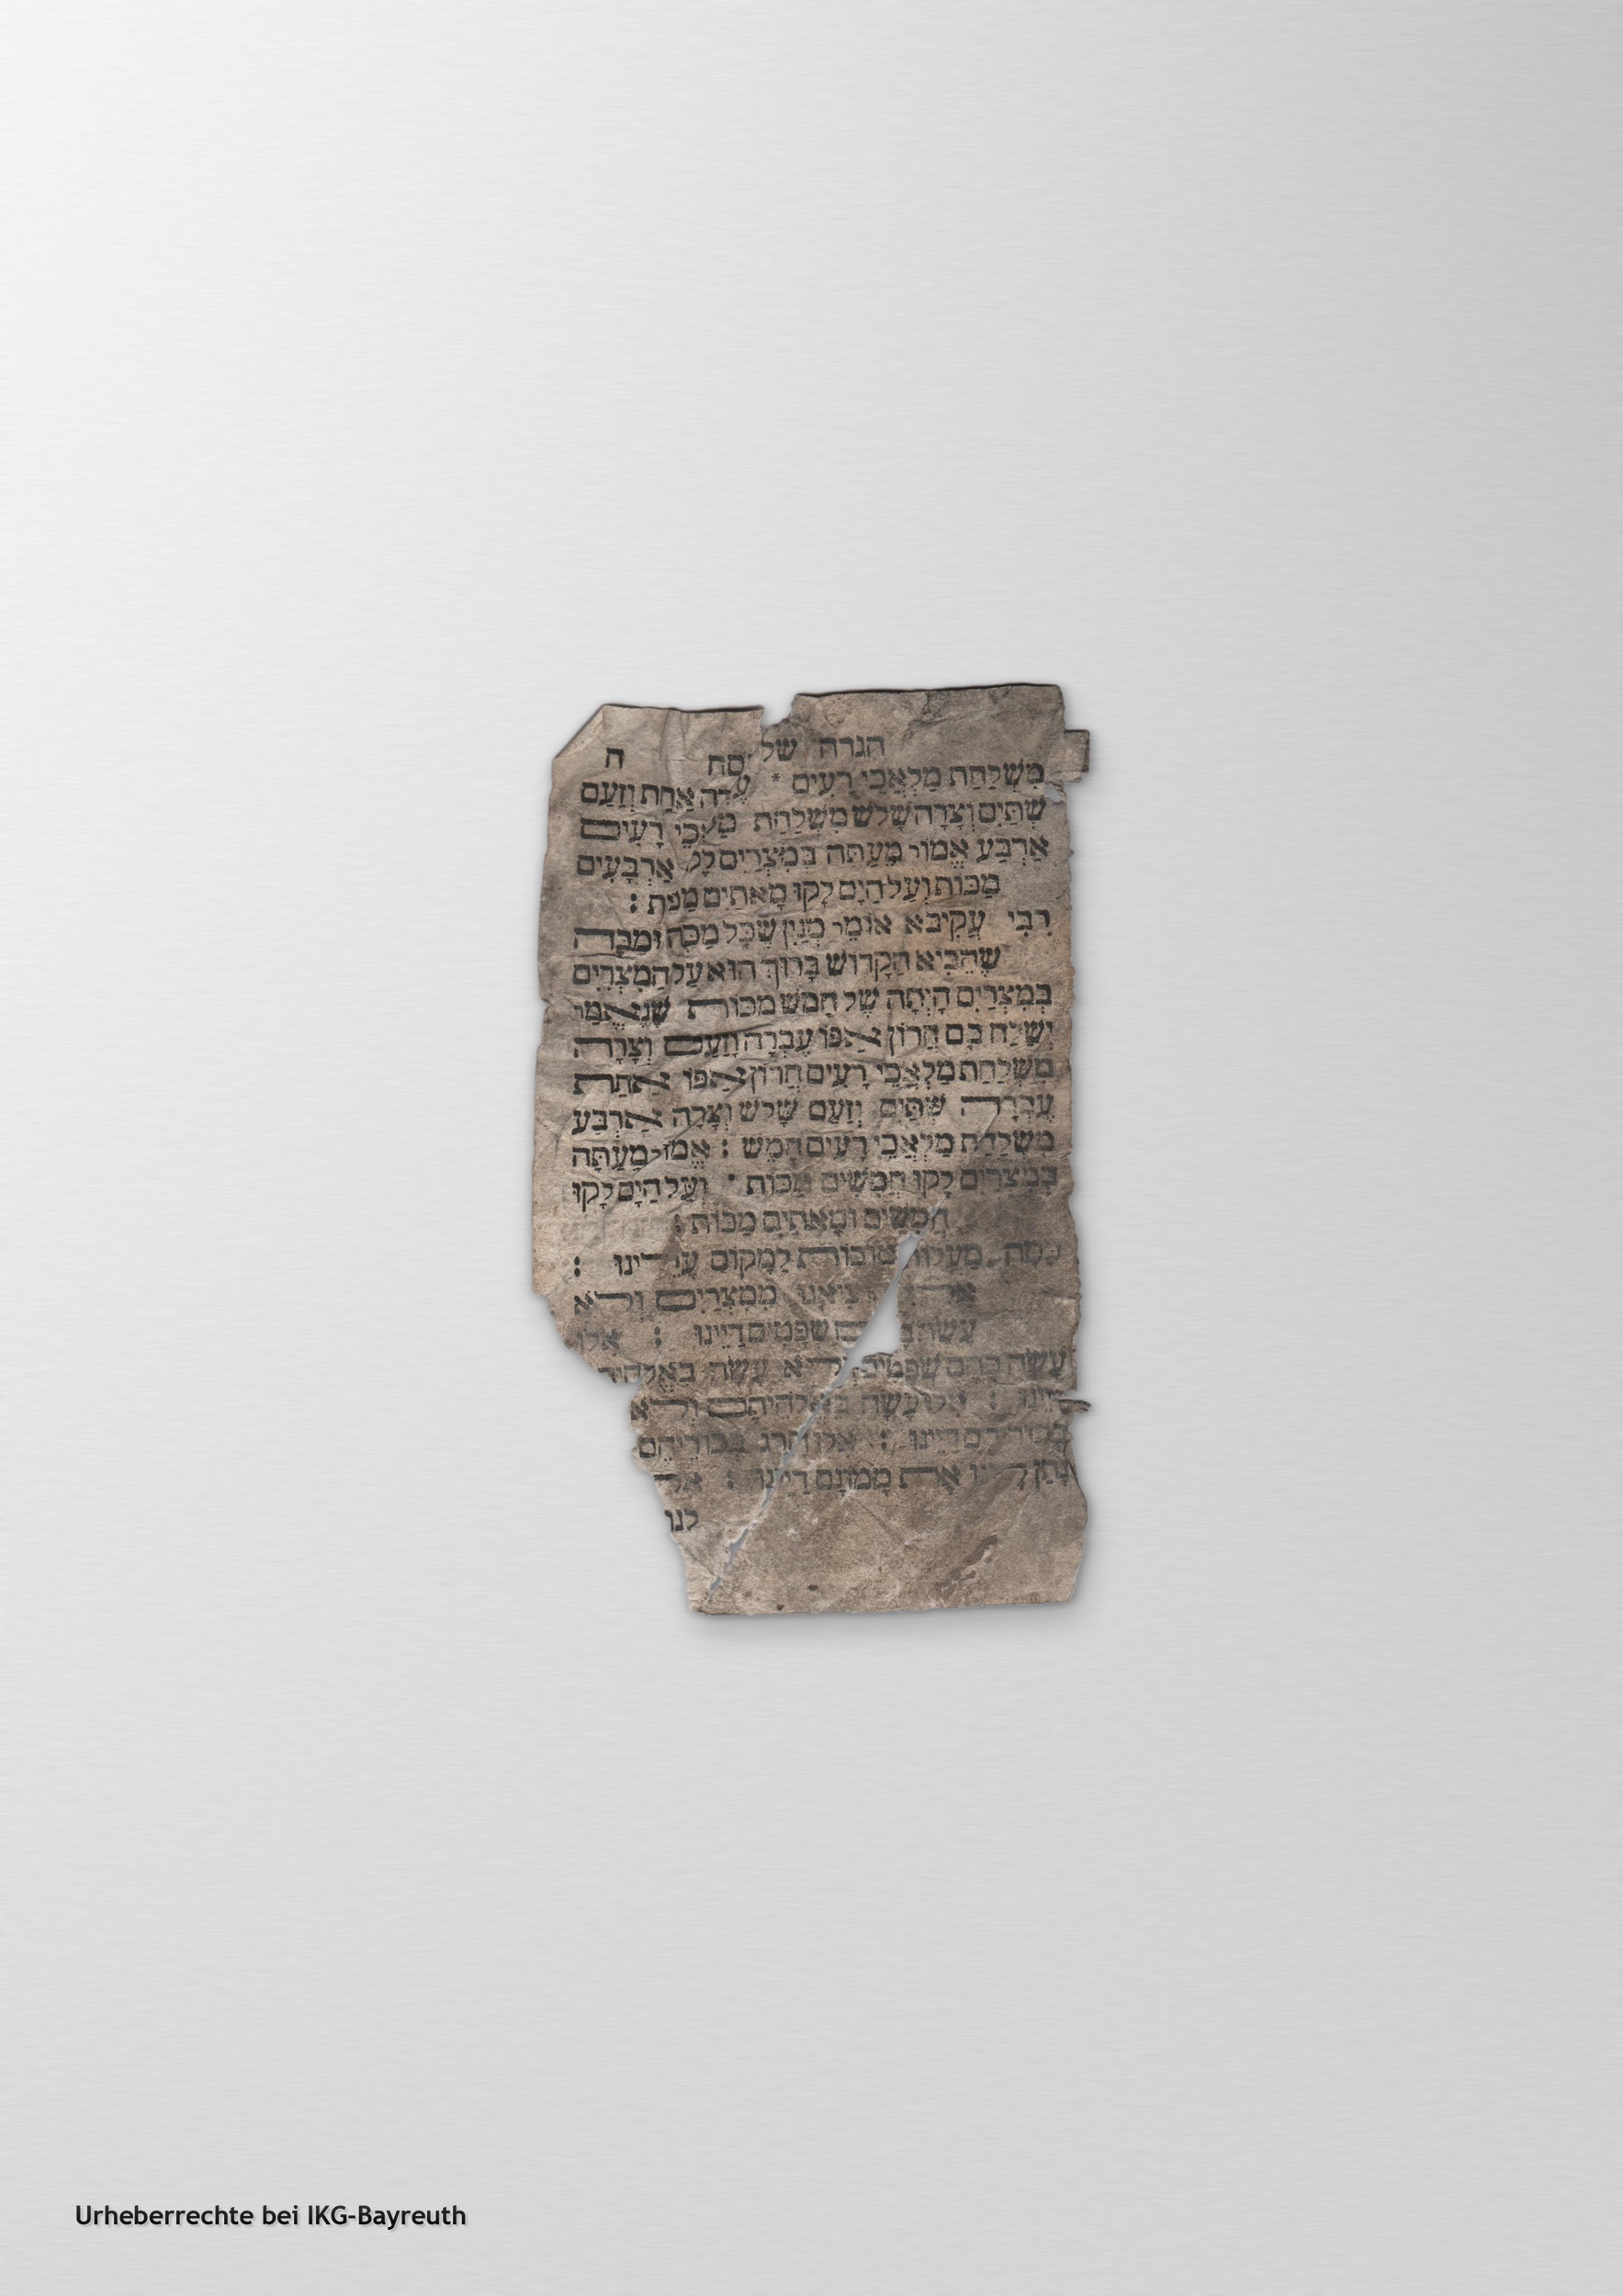 הגדה של פסח ה
מִשְׁלַחַת מַלְאֲכֵי רָעִים * עֶבְרָה אַחַת וָזַעַם
שְׁתַּיִם וְצָרָה שָׁלֹשׁ מִשְׁלַחַת מַלְאֲכֵי רָעִים
אַרְבַּע אֱמוֹר מֵעַתָּה בְּמִצְרַיִם לָקוּ אַרְבָּעִים
מַכּוֹת וְעַל הַיָּם לָקוּ מָאתַיִם מַכּוֹת :
רִבִּי עֲקִיבָא אוֹמֵר מִנַּיִן שֶׁכָּל מַכָּה וּמַכָּה
שֶׁהֵבִיא הַקָּדוֹשׁ בָּרוּךְ הוּא עַל הַמִּצְרִים
בְּמִצְרַיִם הָיְתָה שֶׁל חָמֵשׁ מַכּוֹת שֶׁנֶּאֱמַר
יְשַׁלַּח בָּם חֲרוֹן אַפּוֹ עֶבְרָה וָזַעַם וְצָרָה
מִשְׁלַחַת מַלְאֲכֵי רָעִים חֲרוֹן אַפּוֹ אַחַת
עֶבְרָה שְׁתַּיִם וָזַעַם שָׁלֹשׁ וְצָרָה אַרְבַּע
מִשְׁלַחַת מַלְאֲכֵי רָעִים חָמֵשׁ : אֱמוֹר מֵעַתָּה
בְּמִצְרַיִם לָקוּ חֲמִשִּׁים מַכּוֹת * וְעַל הַיָּם לָקוּ
חֲמִשִּׁים וּמָאתַיִם מַכּוֹת :
כַּמָּה מַעֲלוֹת טוֹבוֹת לַמָּקוֹם עָלֵינוּ :
מִמִּצְרַיִם וְלֹא
עָשָׂה שְׁפָטִים דַּיֵּינוּ : אִלּוּ
עָשָׂה בָהֶם שְׁפָטִים וְלֹא עָשָׂה
דַּיֵּינוּ : אִלּוּ עָשָׂה בֵאלֹהֵיהֶם וְלֹא
דַּיֵּינוּ : אִלּוּ הָרַג בְּכוֹרֵיהֶם
נָתַן לָנוּ אֶת מָמוֹנָם דַּיֵּינוּ :
לנו
Urheberrechte bei IKG-Bayreuth